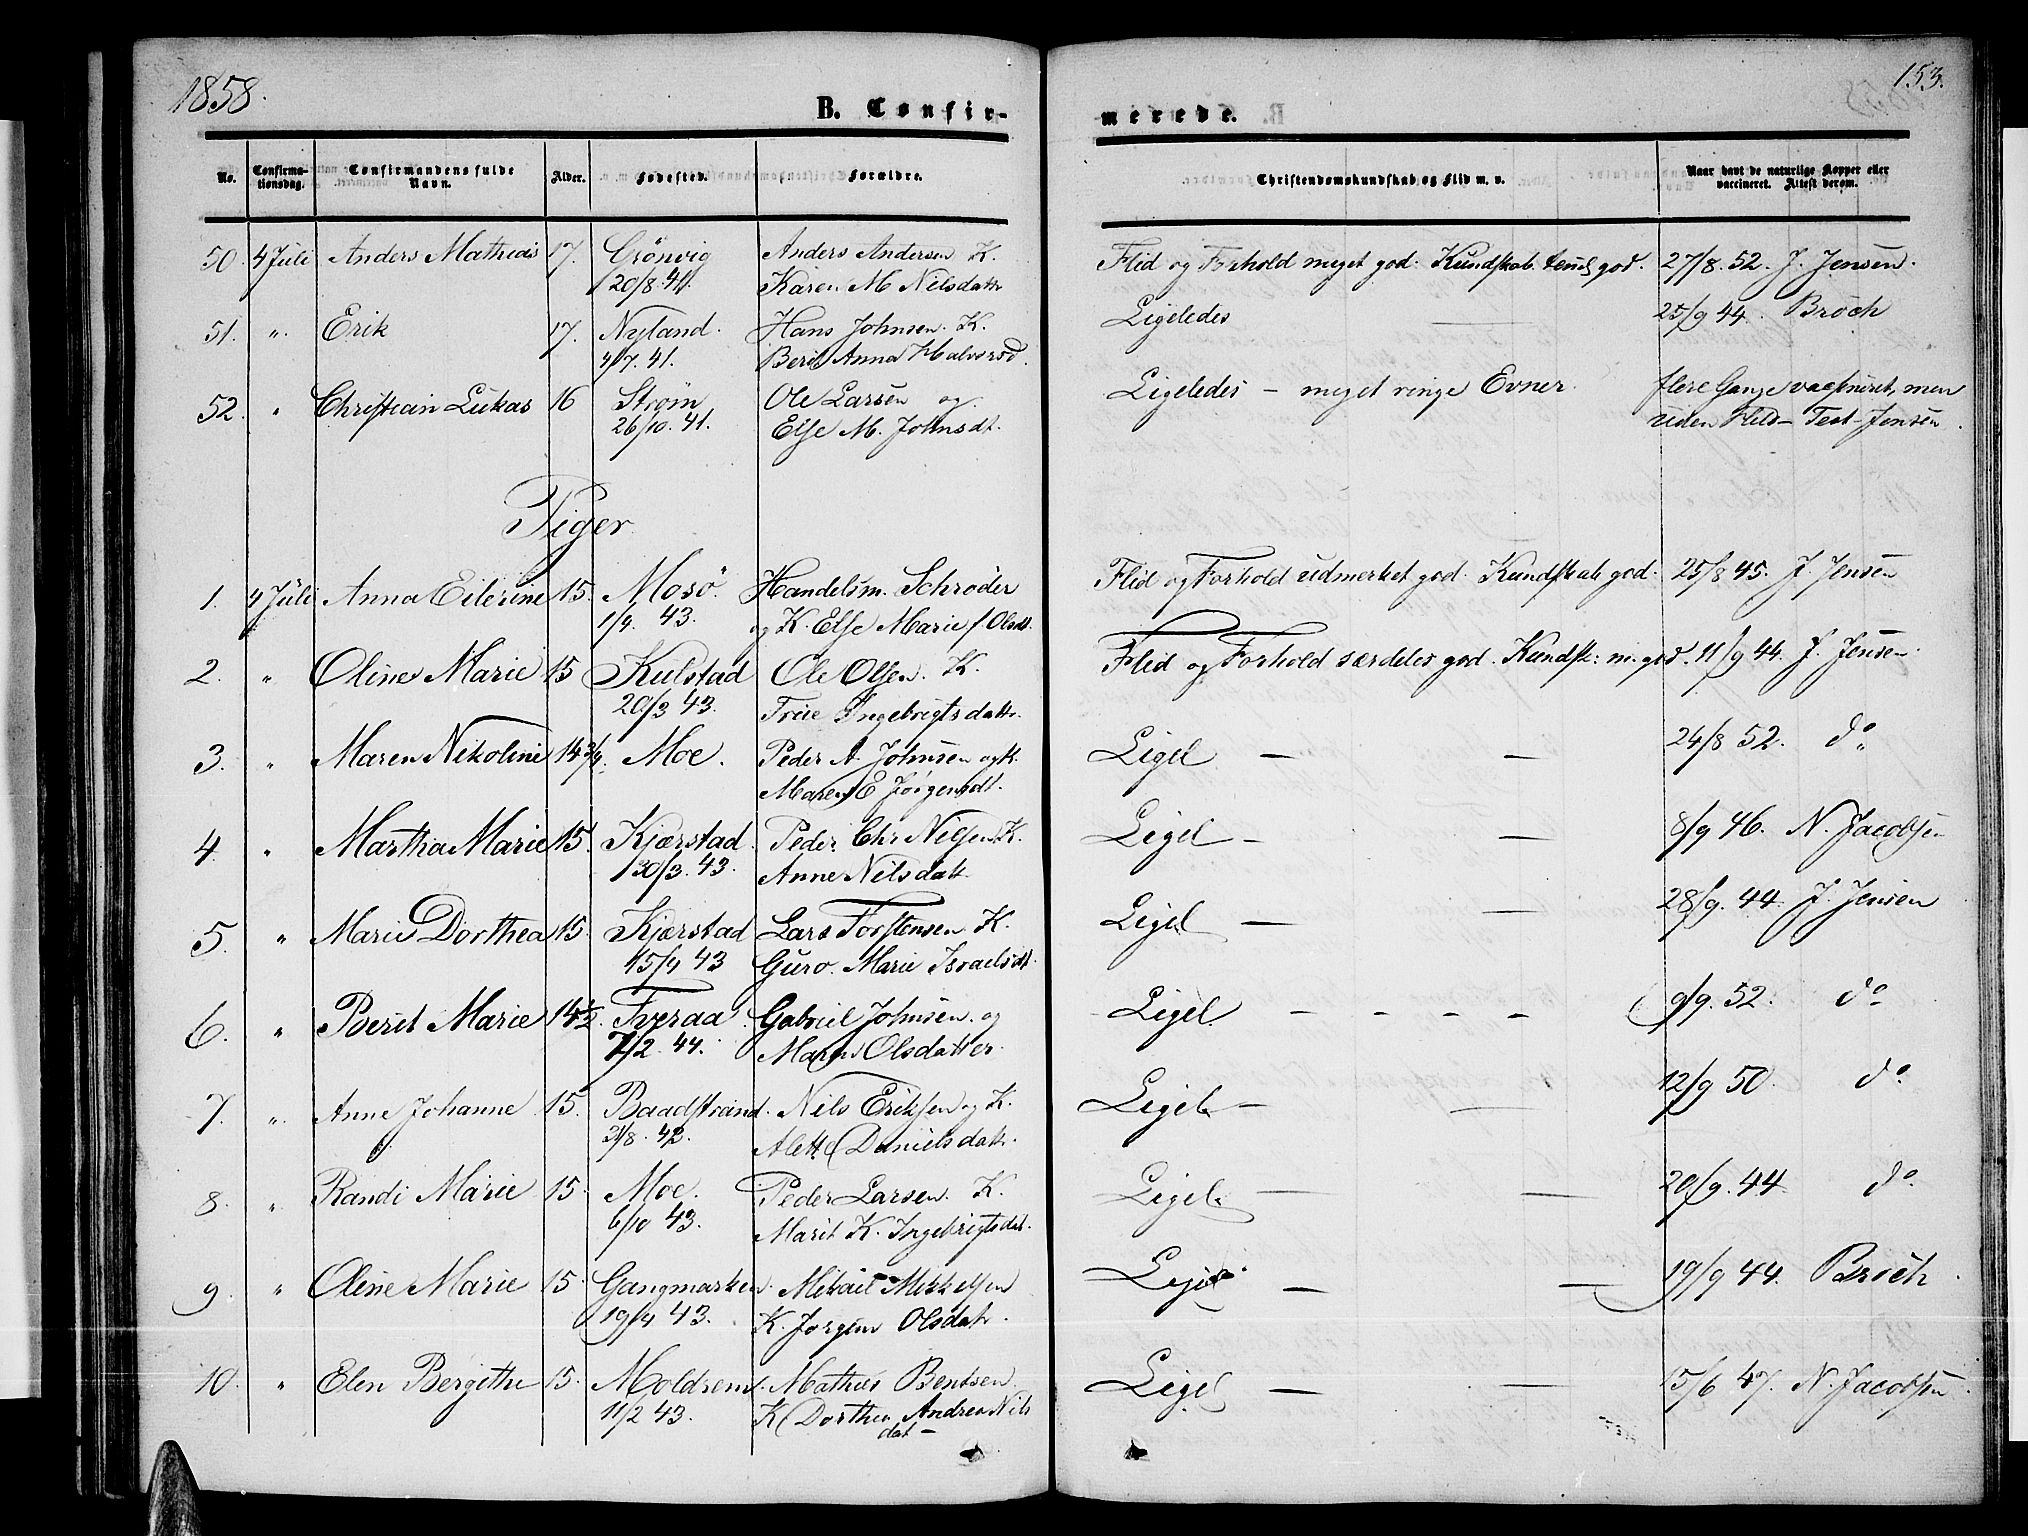 1858.
153.
B. Confir-
merede.
No. Confirma-tionsdag. Confirmandens fulde Navn. Alder. Fødested. Forældre. Christendomskundskab og Flid m. v. Naar havt de naturlige Kopper eller vaccineret. Attest derom.
50. 4 Juli Anders Mathias 17. Grönvig Anders Andersen K. Flid og Forhold meget god. Kundskab god. 27/8. 52. J. Jensen.
20/8. 41. Karen M Nilsdattr
51. ". Erik 17. Nyland. Hans Johnsen. K. Ligeledes — 25/9 44. Broch
4/7. 41. Berit Anna
52. " Christian Lukas 16 Strøm Ole Larsen og Ligeledes — meget ringe Evner. flere Gange vaccineret, men
26/10. 41. Else M. Johnsdt. uden Held — Test. Jensen.
Piger
1. 4 Juli Anna Eilerine 15. Mosö. Handelsm. Schrøder Flid og Forhold udmerket god. Kundskab god. 25/8 45. J. Jensen
1/9. 43. og K. Else Marie f. Olsdt.
2. " Oline Marie 15 Kulstad Ole Olsen. K. Flid og Forhold særdeles god. Kundsk: m. god. 11/9 44. J. Jensen.
20/3 43. Ingebrigtsdattr.
3. " Maren Nikoline 14 3/4. Moe. Peder A. Johnsen og K. Ligel — — 24/8 52. do
Maren E Jörgensdt.
4. " Martha Marie 15. Kjærstad. Peder Chr Nilsen K. Ligel — — 8/9 46. N. Jacobsen
30/3. 43. Anne Nilsdatt.
5. " Marie Dorthea 15. Kjærstad Lars Torstensen K. Ligel — — 28/9. 44. J. Jensen
15/9 43 Guro. Marie Israelsdt.
6. " Berit Marie 14 1/2. Tveraa. Gabriel Johnsen. og Ligel. — — — — 9/9. 52. do
7/2. 44. Olsdatter.
7. ". Anne Johanne 15. Baadstrand. Nils Eriksen og K. Ligel. — — 12/9 50. do.
31/8. 42. Alette Danielsdatr.
8. " Randi Marie 15. Moe. Peder Larsen. K. Ligel. — — 20/9. 44. do.
6/10 43. Marit K. Ingebrigtsdat.
9. " Oline Marie 15. Gangmarken. Mikael Mikkelsen Ligel. — — 19/9 44. Broch.
19/4 43. K. Jorgine Olsdatr.
10. " Elen Bergithe 15. Moldrem. Mathias Bentsen. Ligel — — 15/6 47. N. Jacobsen.
11/2 43. K Dorthea Andrea Nils
dat —